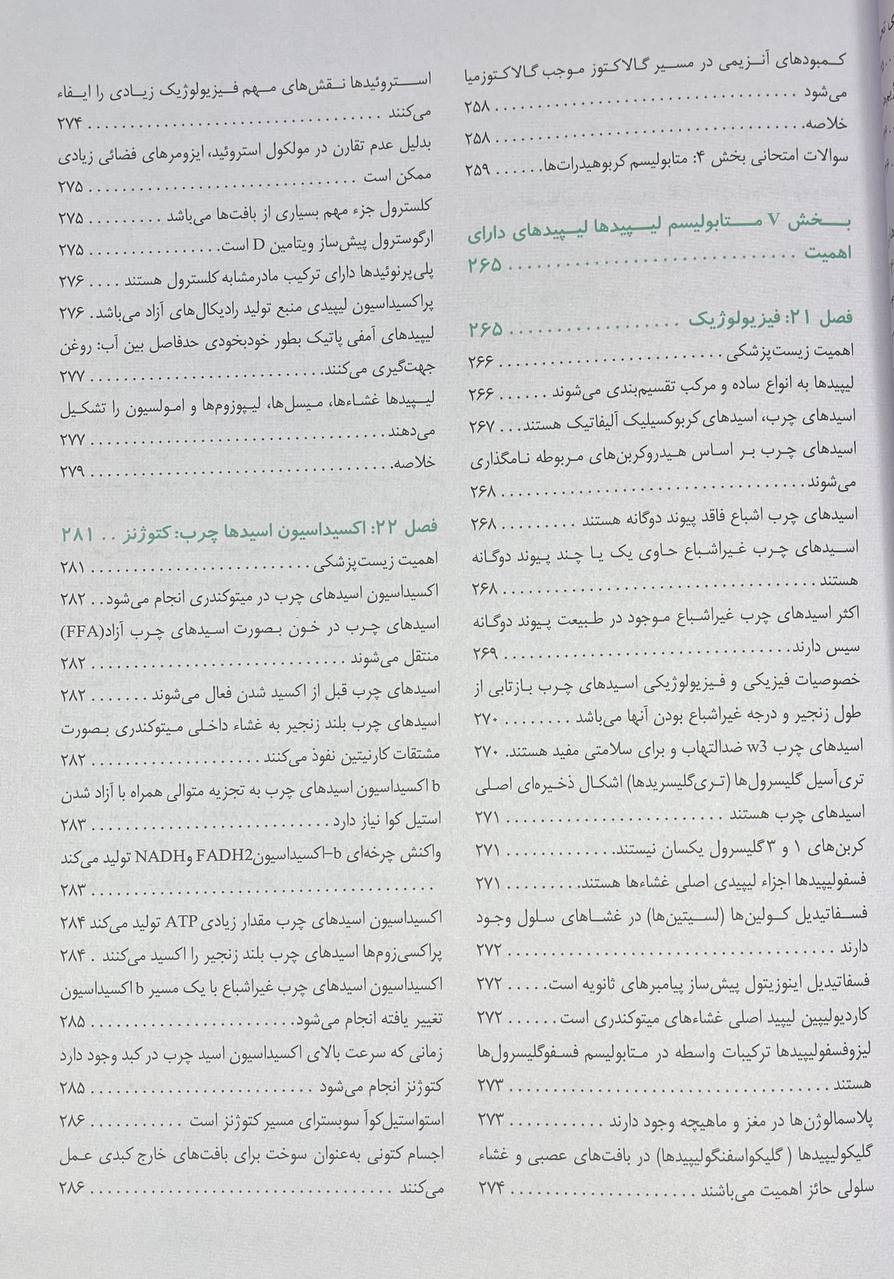 کمبودهای آنزیمی در مسیر گالاکتوز موجب گالاکتوزمیا
می‌شود ................................ ۲۵۸
خلاصه................................ ۲۵۸
سوالات امتحانی بخش ۴: متابولیسم کربوهیدرات‌ها...... ۲۵۹
بخش V متابولیسم لیپیدها لیپیدهای دارای
اهمیت ............................ ۲۶۵
فصل ۲۱: فیزیولوژیک ................. ۲۶۵
اهمیت زیست‌پزشکی ......................... ۲۶۶
لیپیدها به انواع ساده و مرکب تقسیم‌بندی می‌شوند ...... ۲۶۶
اسیدهای چرب، اسیدهای کربوکسیلیک آلیفاتیک هستند... ۲۶۷
اسیدهای چرب بر اساس هیدروکربن‌های مربوطه نامگذاری
می‌شوند................................ ۲۶۸
اسیدهای چرب اشباع فاقد پیوند دوگانه هستند ......... ۲۶۸
اسیدهای چرب غیراشباع حاوی یک یا چند پیوند دوگانه
هستند ................................ ۲۶۸
اکثر اسیدهای چرب غیراشباع موجود در طبیعت پیوند دوگانه
سیس دارند................................ ۲۶۹
خصوصیات فیزیکی و فیزیولوژیکی اسیدهای چرب بازتابی از
طول زنجیر و درجه غیراشباع بودن آنها می‌باشد ........ ۲۷۰
اسیدهای چرب w3 ضدالتهاب و برای سلامتی مفید هستند. ۲۷۰
تری‌آسیل گلیسرول‌ها (تری‌گلیسریدها) اشکال ذخیره‌ای اصلی
اسیدهای چرب هستند ....................... ۲۷۱
کربن‌های ۱ و ۳ گلیسرول یکسان نیستند............. ۲۷۱
فسفولیپیدها اجزاء لیپیدی اصلی غشاءها هستند......... ۲۷۱
فسفاتیدیل کولین‌ها (لسیتین‌ها) در غشاهای سلول وجود
دارند ................................ ۲۷۲
فسفاتیدیل اینوزیتول پیش‌ساز پیامبرهای ثانویه است..... ۲۷۲
کاردیولیپین لیپید اصلی غشاءهای میتوکندری است...... ۲۷۲
لیزوفسفولیپیدها ترکیبات واسطه در متابولیسم فسفوگلیسرول‌ها
هستند ................................ ۲۷۳
پلاسمالوژن‌ها در مغز و ماهیچه وجود دارند ........... ۲۷۳
گلیکولیپیدها ( گلیکواسفنگولیپیدها) در بافت‌های عصبی و غشاء
سلولی حائز اهمیت می‌باشند ..................... ۲۷۴
استروئیدها نقش‌های مهم فیزیولوژیک زیادی را ایفاء
می‌کنند ................................ ۲۷۴
بدلیل عدم تقارن در مولکول استروئید، ایزومرهای فضائی زیادی
ممکن است ................................ ۲۷۵
کلسترول جزء مهم بسیاری از بافت‌ها می‌باشد ......... ۲۷۵
ارگوسترول پیش‌ساز ویتامین D است................ ۲۷۵
پلی‌پرنوئیدها دارای ترکیب مادرمشابه کلسترول هستند .... ۲۷۶
پراکسیداسیون لیپیدی منبع تولید رادیکال‌های آزاد می‌باشد. ۲۷۶
لیپیدهای آمفی پاتیک بطور خودبخودی حدفاصل بین آب: روغن
جهت‌گیری می‌کنند............................ ۲۷۷
لیپیدها غشاءها، میسل‌ها، لیپوزوم‌ها و امولسیون را تشکیل
می‌دهند................................ ۲۷۷
خلاصه................................ ۲۷۹
فصل ۲۲: اکسیداسیون اسیدها چرب: کتوژنز .. ۲۸۱
اهمیت زیست‌پزشکی ......................... ۲۸۱
اکسیداسیون اسیدهای چرب در میتوکندری انجام می‌شود.. ۲۸۲
اسیدهای چرب در خون بصورت اسیدهای چرب آزاد(FFA)
منتقل می‌شوند .............................. ۲۸۲
اسیدهای چرب قبل از اکسید شدن فعال می‌شوند ....... ۲۸۲
اسیدهای چرب بلند زنجیر به غشاء داخلی میتوکندری بصورت
مشتقات کارنیتین نفوذ می‌کنند .................... ۲۸۲
b اکسیداسیون اسیدهای چرب به تجزیه متوالی همراه با آزاد شدن
استیل کوا نیاز دارد............................ ۲۸۳
واکنش چرخه‌ای b–اکسیداسیون FADH2 و NADH تولید می‌کند
................................ ۲۸۳
اکسیداسیون اسیدهای چرب مقدار زیادی ATP تولید می‌کند ۲۸۴
پراکسی‌زوم‌ها اسیدهای چرب بلند زنجیر را اکسید می‌کنند . ۲۸۴
اکسیداسیون اسیدهای چرب غیراشباع با یک مسیر b اکسیداسیون
تغییر یافته انجام می‌شود......................... ۲۸۵
زمانی که سرعت بالای اکسیداسیون اسید چرب در کبد وجود دارد
کتوژنز انجام می‌شود ......................... ۲۸۵
استواستیل‌کوآ سوبسترای مسیر کتوژنز است ........... ۲۸۶
اجسام کتونی به‌عنوان سوخت برای بافت‌های خارج کبدی عمل
می‌کنند ................................ ۲۸۶